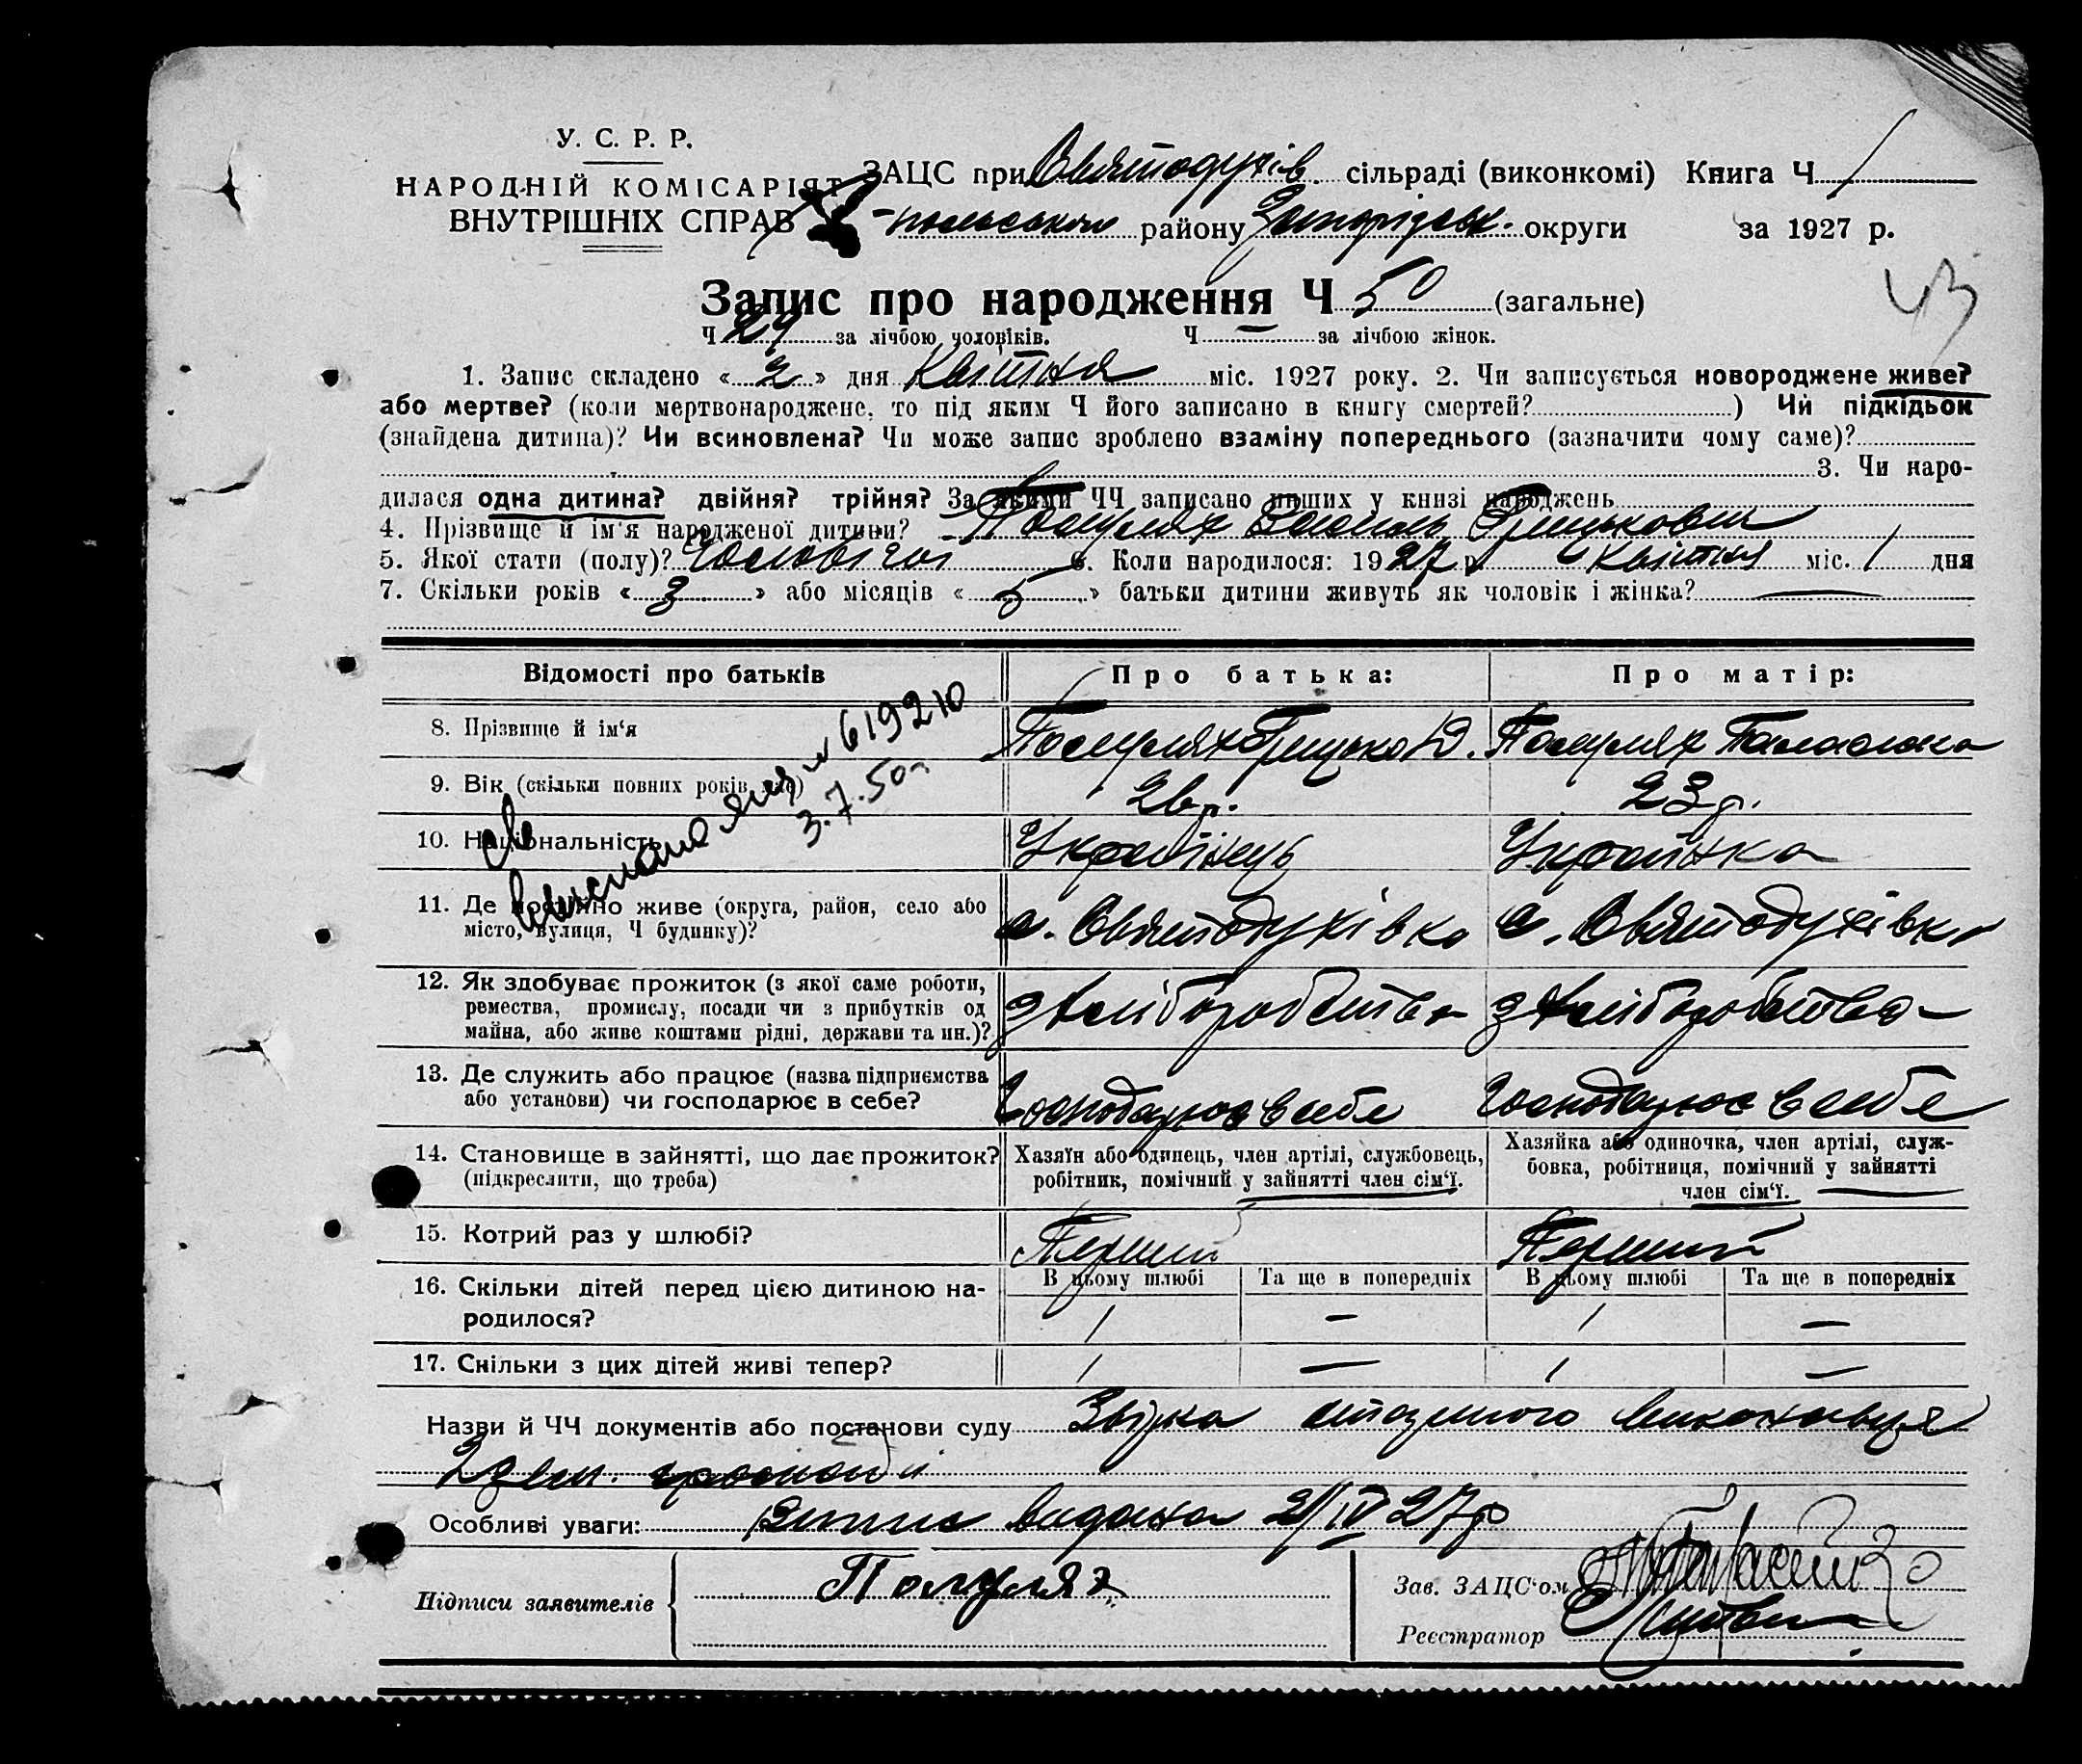 У. С. Р. Р.
НАРОДНІЙ КОМІСАРІЯТ
ВНУТРІШНІХ СПРАВ
ЗАЦС при Святодухів. сільраді (виконкомі) Книга Ч 1
-польського району Запорізьк. округи за 1927 р.
43
Запис про народження Ч 50 (загальне)
Ч 29 за лічбою чоловіків. Ч — за лічбою жінок.
1. Запис складено « 2 » дня Квітня міс. 1927 року. 2. Чи записується новороджене живе?
або мертве? (коли мертвонароджене, то під яким Ч його записано в книгу смертей? ) Чи підкідьок
(знайдена дитина)? Чи всиновлена? Чи може запис зроблено взаміну попереднього (зазначити чому саме)?
3. Чи наро-
дилася одна дитина? двійня? трійня? За якими ЧЧ записано инших у книзі народжень
4. Прізвище й ім'я народженої дитини? Полулях Василь Грицькович
5. Якої стати (полу)? Чоловічої 6. Коли народилося: 1927 р. Квітня міс. 1 дня
7. Скільки років « 3 » або місяців « 5 » батьки дитини живуть як чоловік і жінка? —
Відомості про батьків Про батька: Про матір:
8. Прізвище й ім'я Полулях Грицько Ю. Полулях Палажка
9. Вік (скільки повних років має) 26 р. 23 р.
10. Національність Українець Українка
11. Де постійно живе (округа, район, село або
місто, вулиця, Ч будинку)? с. Святодухівка с. Святодухівка
12. Як здобуває прожиток (з якої саме роботи,
ремества, промислу, посади чи з прибутків од
майна, або живе коштами рідні, держави та ин.)? з хліборобства з хліборобства
13. Де служить або працює (назва підприємства
або установи) чи господарює в себе? Господарює в себе Господарює в себе
14. Становище в зайнятті, що дає прожиток?
(підкреслити, що треба)
Хазяїн або одинець, член артілі, службовець,
робітник, помічний у зайнятті член сім'ї.
Хазяйка або одиночка, член артілі, служ-
бовка, робітниця, помічний у зайнятті
член сім'ї.
15. Котрий раз у шлюбі? Перший Перший
16. Скільки дітей перед цією дитиною на-
родилося?
В цьому шлюбі Та ще в попередніх В цьому шлюбі Та ще в попередніх
1 — 1 —
17. Скільки з цих дітей живі тепер? 1 — 1 —
619210
3.7.50 г.
Назви й ЧЧ документів або постанови суду Звірка виконавця
Особливі уваги: Випис видана 2/IV 27 р
Підписи заявителів Полулях
Зав. ЗАЦС'ом
Реєстратор